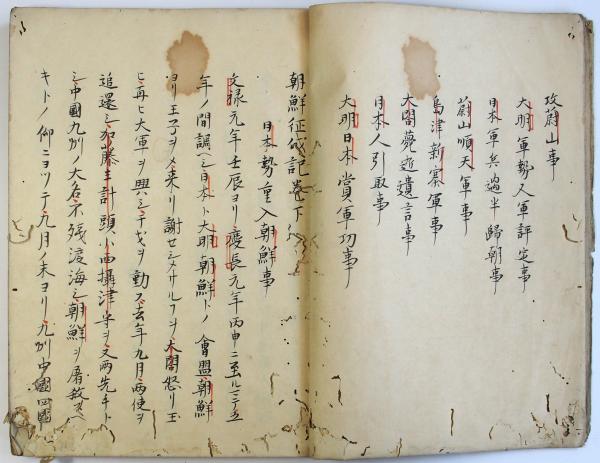 攻蔚山事
大明軍勢又軍評定事
日本軍兵過半歸朝事
蔚山順天軍事
島津新寨軍事
大閤薨逝遺言事
日本人引取事
大明日本賞軍功事
朝鮮征伐記巻下
日本勢重入朝鮮事
文禄元年壬辰ヨリ慶長元年丙申ニ至ルマテ五
年ノ間調ヘシ日本ト大明朝鮮トノ會盟朝鮮
ヨリ王子ヲ来リ謝セシメサルヿヲ太閤怒リ玉
ヒ再ヒ大軍ヲ興シ干戈ヲ動ス去年九月両使ヲ
追還シ加藤主計頭小西攝津守ヲ又両先手ト
シ中國九州ノ大名不残渡海シ朝鮮ヲ屠殺スヘ
キトノ仰ニヨツテ九月ノ末ヨリ九州中國四國